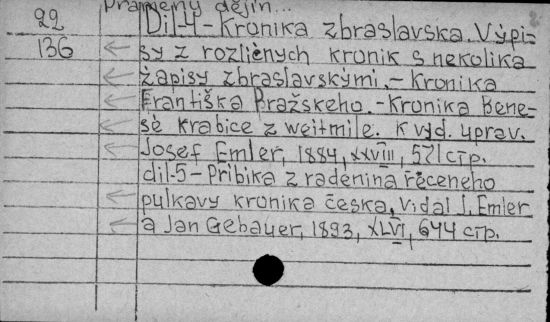 prameny dějin...
92 Díl-4-Kronika zbraslavska. Výpi=
136 ← sy z rozličných kronik s nekolika
← žapisy zbraslavskými.-Kronika
← Františka Pražskeho.-Kronika Bene=
← sè Krabice z weitmile. K vyd. uprav.
← Josef Emler, 1884, XXVIII, 571 стр.
díl-5-Pribika z radenina řèceneho
← pulkavy kronika česka, Vidal J. Emler
← a Jan Gebauer, 1893, XLVI, 644 стр.